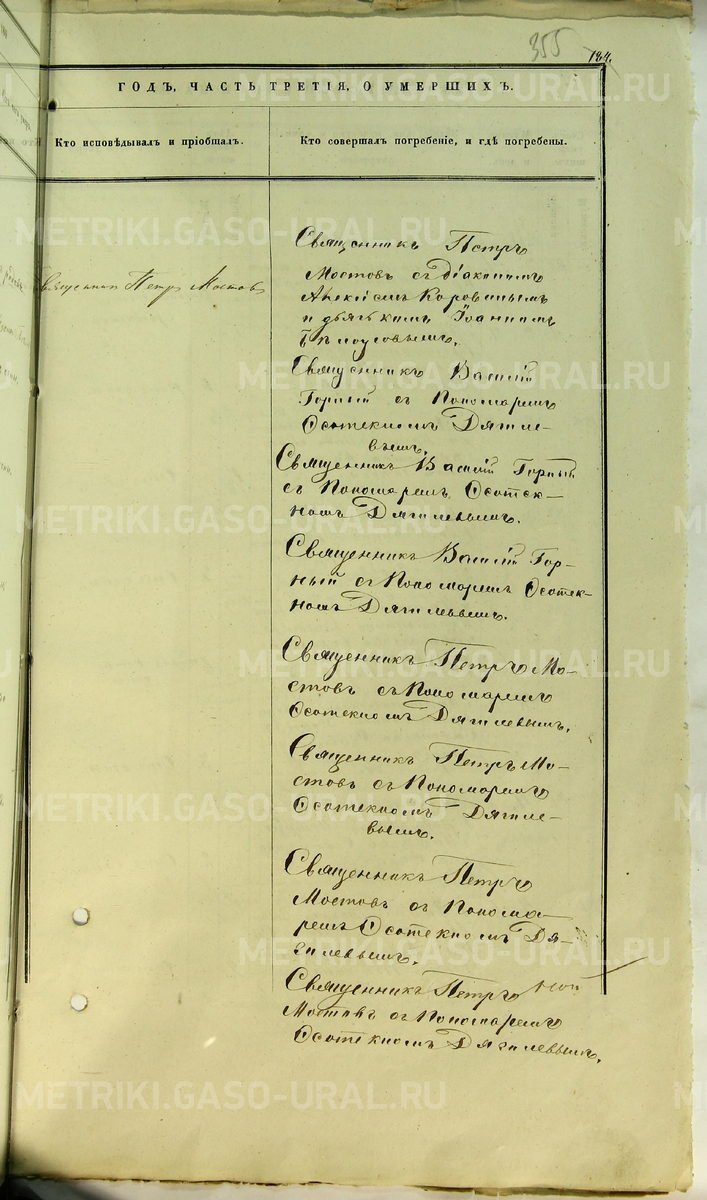 355
184.
ГОДЪ, ЧАСТЬ ТРЕТІЯ, О УМЕРШИХЪ.
Кто исповѣдывалъ и пріобщалъ.
Кто совершалъ погребеніе, и гдѣ погребены.
Священникъ Петръ
Мостовъ съ діакономъ
Алексіемъ Коровинымъ
и дьячкомъ Іоанномъ
Священникъ Петръ Мостовъ
Священникъ Василій
Горный съ Пономаремъ
Ѳеотекномъ Дягиле-
вымъ.
Священникъ Василій Горный
съ Пономаремъ Ѳеотек-
номъ Дягилевымъ.
Священникъ Василій Гор-
ный съ Пономаремъ Ѳеотек-
номъ Дягилевымъ.
Священникъ Петръ Мо-
стовъ съ Пономаремъ
Ѳеотекномъ Дягилевымъ.
Священникъ Петръ Мо-
стовъ съ Пономаремъ
Ѳеотекномъ Дягиле-
вымъ.
Священникъ Петръ
Мостовъ съ Понома-
ремъ Ѳеотекномъ Дя-
гилевымъ.
Священникъ Петръ
Мостовъ съ Пономаремъ
Ѳеотекномъ Дягилевымъ.
METRIKI.GASO-URAL.RU